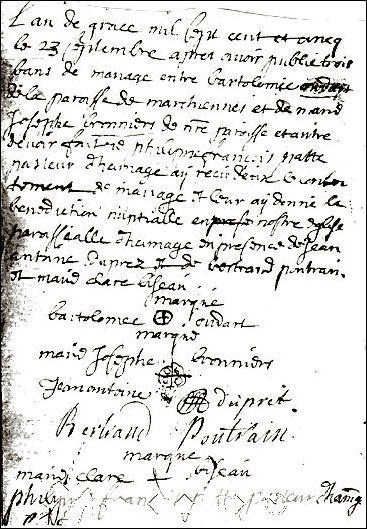 L'an de grace mil sept cent et cincq
le 23 septembre apres avoir publie trois
bans de mariage entre bartolomie oudart
de la paroisse de marchiennes et de maried
Josephe bronniers de nre paroisse et autre
devoir fait je philippe françois
pasteur d'hamage ay recu deux le consen
tement de mariage et leur ay donne la
benediction nuptialle en nostre eglise
paroissialle d'hamage en presence de Jean
antoine duprez et de bertrand poutrain
et maried clare biseau
marque
bartolomee oudart
marque
maried Josephe bronniers
Jean antoine duprêt
Bertrand Poutrain
marque
maried clare biseau
philippe franç pasteur d'hamg